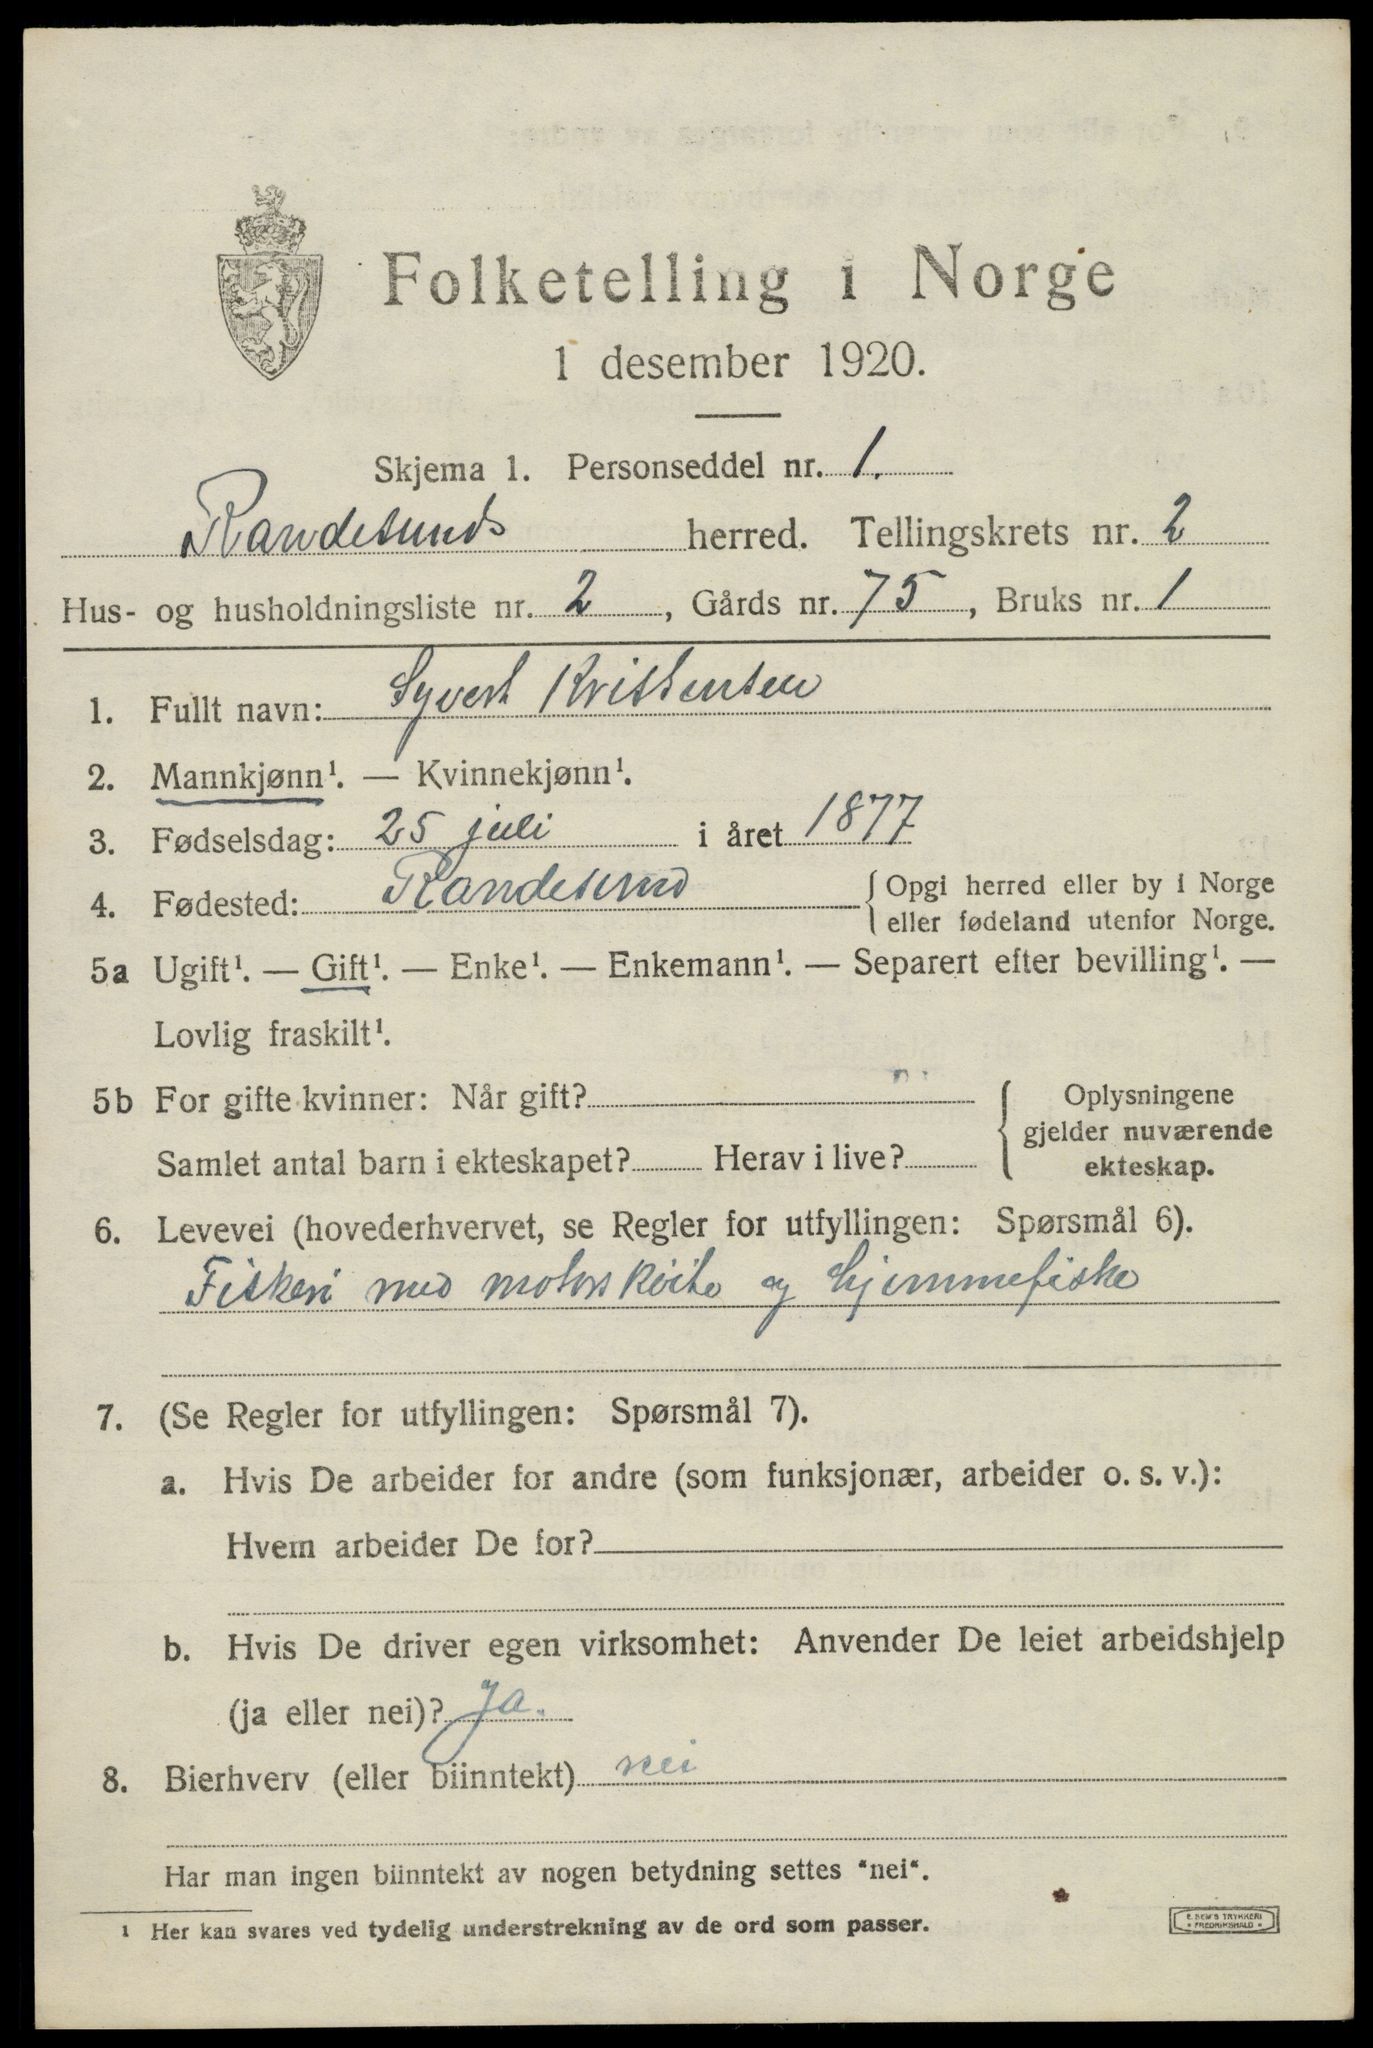 Folketelling i Norge
1 desember 1920.
Skjema 1. Personseddel nr. 1.
Randesunds herred. Tellingskrets nr. 2
Hus- og husholdningsliste nr. 2, Gårds nr. 75, Bruks nr. 1
1. Fullt navn: Syvert Kristensen
2. Mannkjønn¹. — Kvinnekjønn¹.
3. Fødselsdag: 25 juli i året 1877
4. Fødested: Randesund { Opgi herred eller by i Norge
eller fødeland utenfor Norge.
5a Ugift¹. — Gift¹. — Enke¹. — Enkemann¹. — Separert efter bevilling¹. —
Lovlig fraskilt¹.
5b For gifte kvinner: Når gift? { Oplysningene
gjelder nuværende
Samlet antal barn i ekteskapet? Herav i live? ekteskap.
6. Levevei (hovederhvervet, se Regler for utfyllingen: Spørsmål 6).
Fiskeri med motorskøite og hjemmefiske
7. (Se Regler for utfyllingen: Spørsmål 7).
a. Hvis De arbeider for andre (som funksjonær, arbeider o. s. v.):
Hvem arbeider De for?
b. Hvis De driver egen virksomhet: Anvender De leiet arbeidshjelp
(ja eller nei)? Ja.
8. Bierhverv (eller biinntekt) nei
Har man ingen biinntekt av nogen betydning settes "nei".
¹ Her kan svares ved tydelig understrekning av de ord som passer.
E. SEM'S TRYKKERI
FREDRIKSHALD